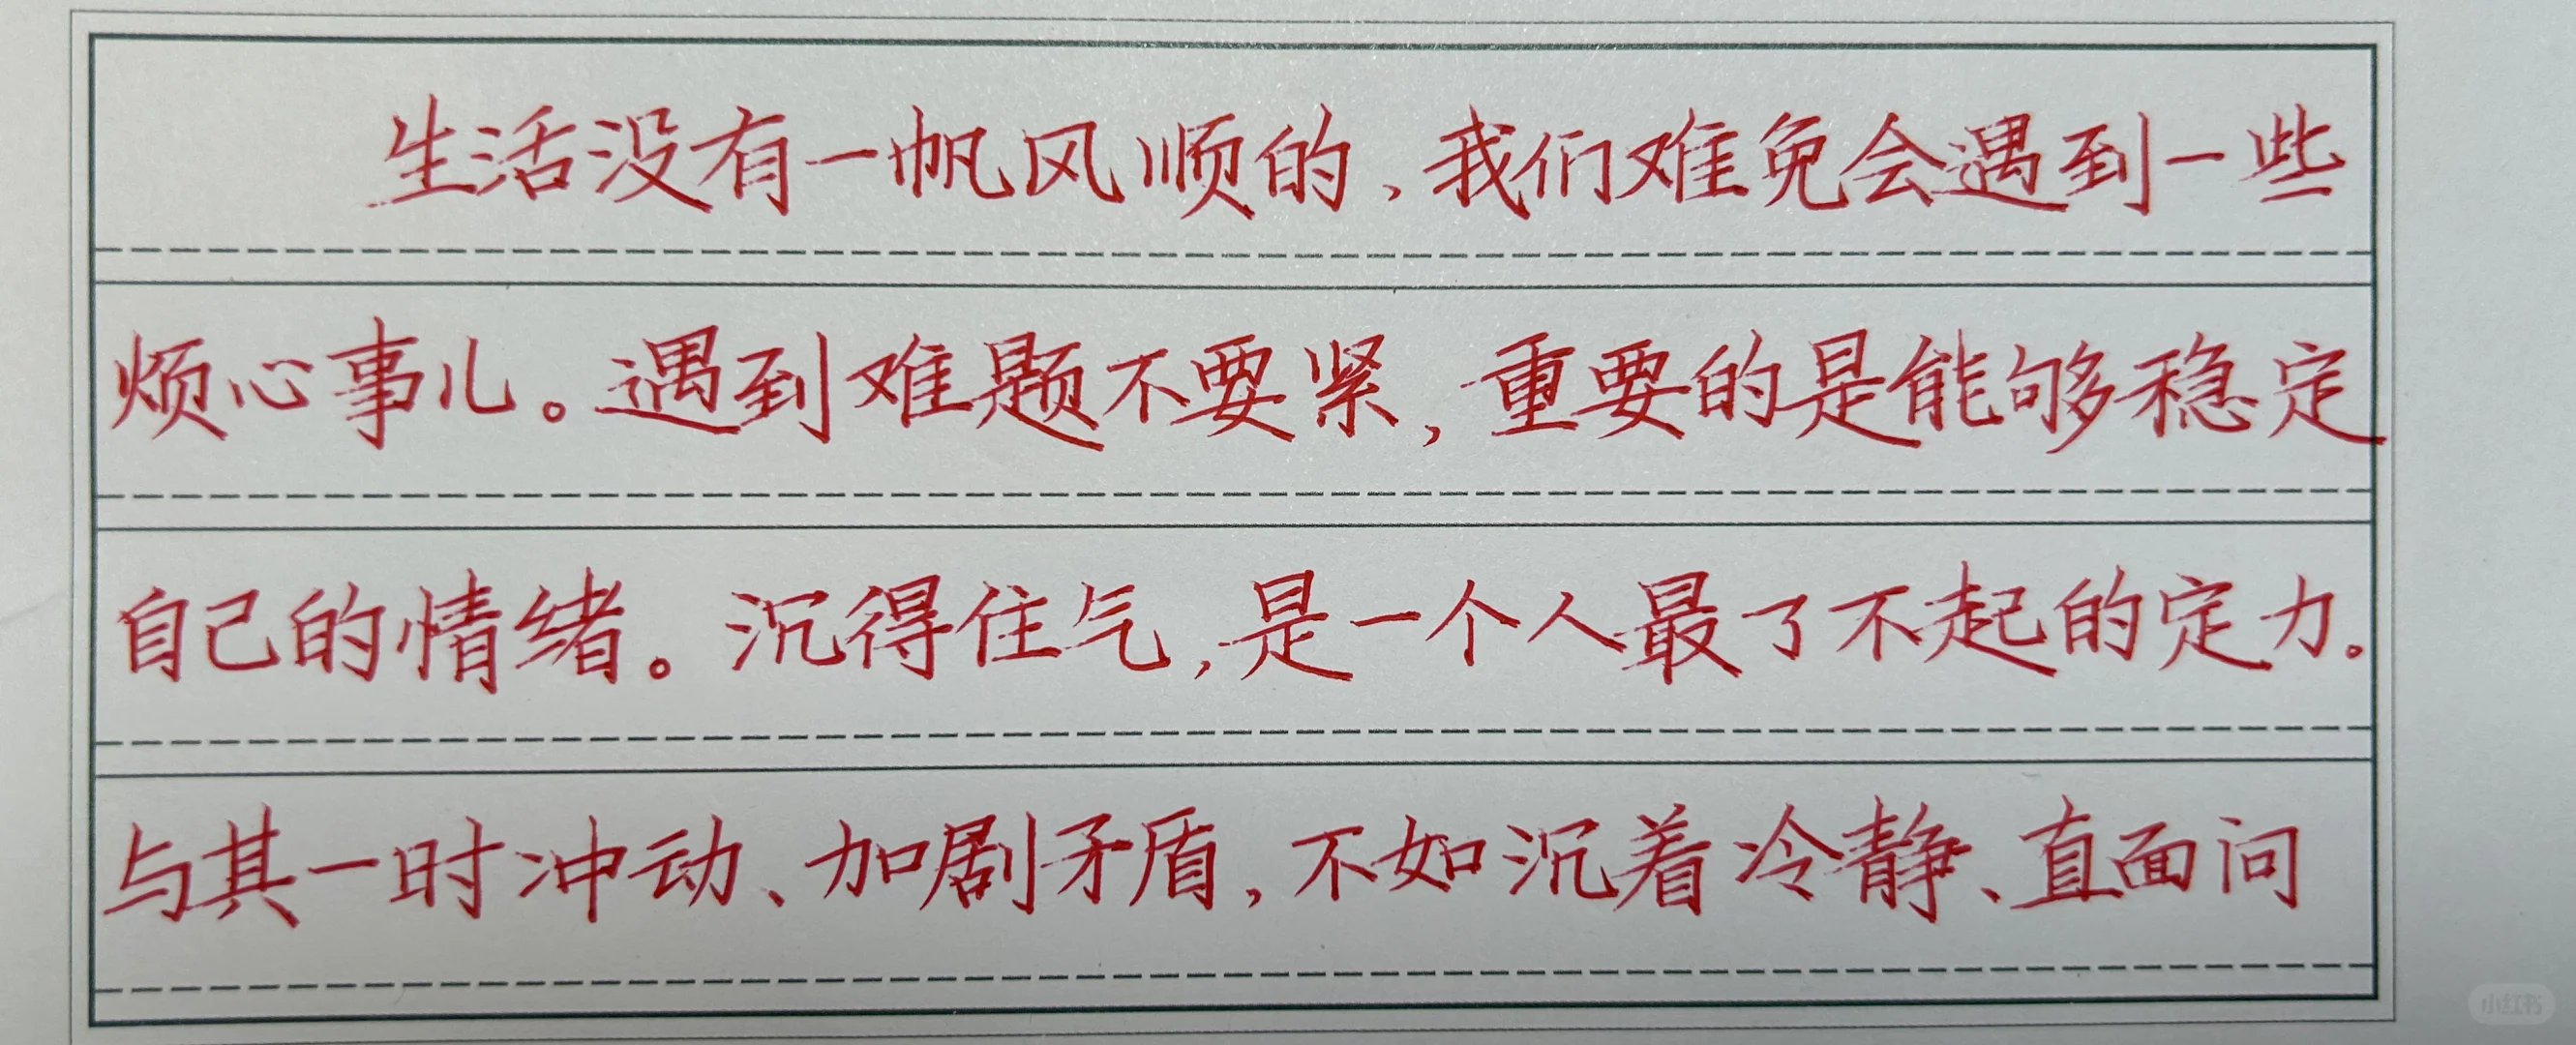 生活没有一帆风顺的，我们难免会遇到一些
烦心事儿。遇到难题不要紧，重要的是能够稳定
自己的情绪。沉得住气，是一个人最了不起的定力。
与其一时冲动、加剧矛盾，不如沉着冷静、直面问
小红书